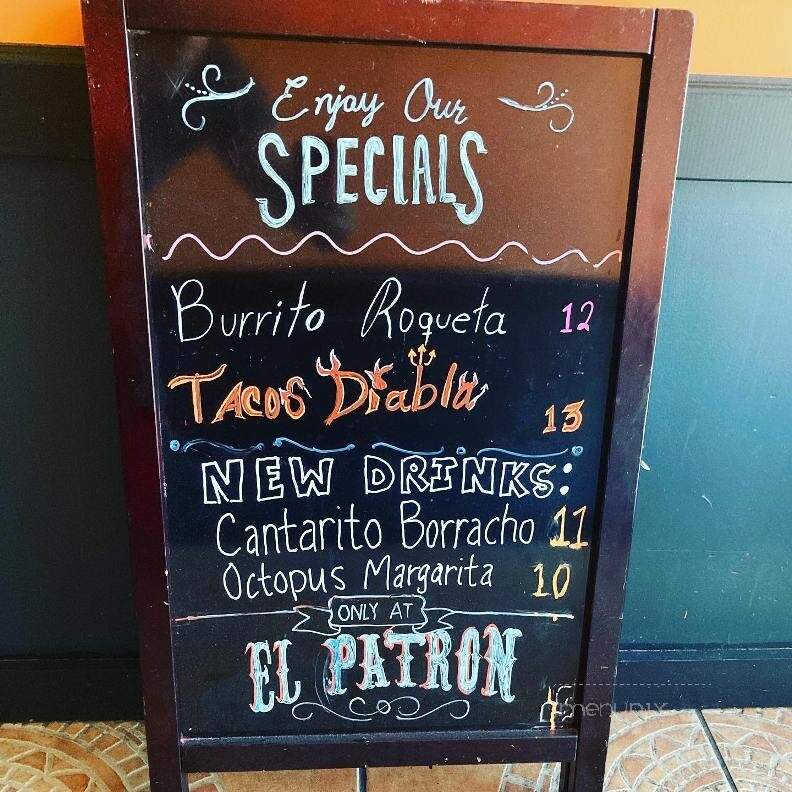 Enjoy Our
SPECIALS
Burrito Roqueta 12
TACOS Diabla 13
NEW DRINKS:
Cantarito Borracho 11
Octopus Margarita 10
ONLY AT
EL PATRON
menupix